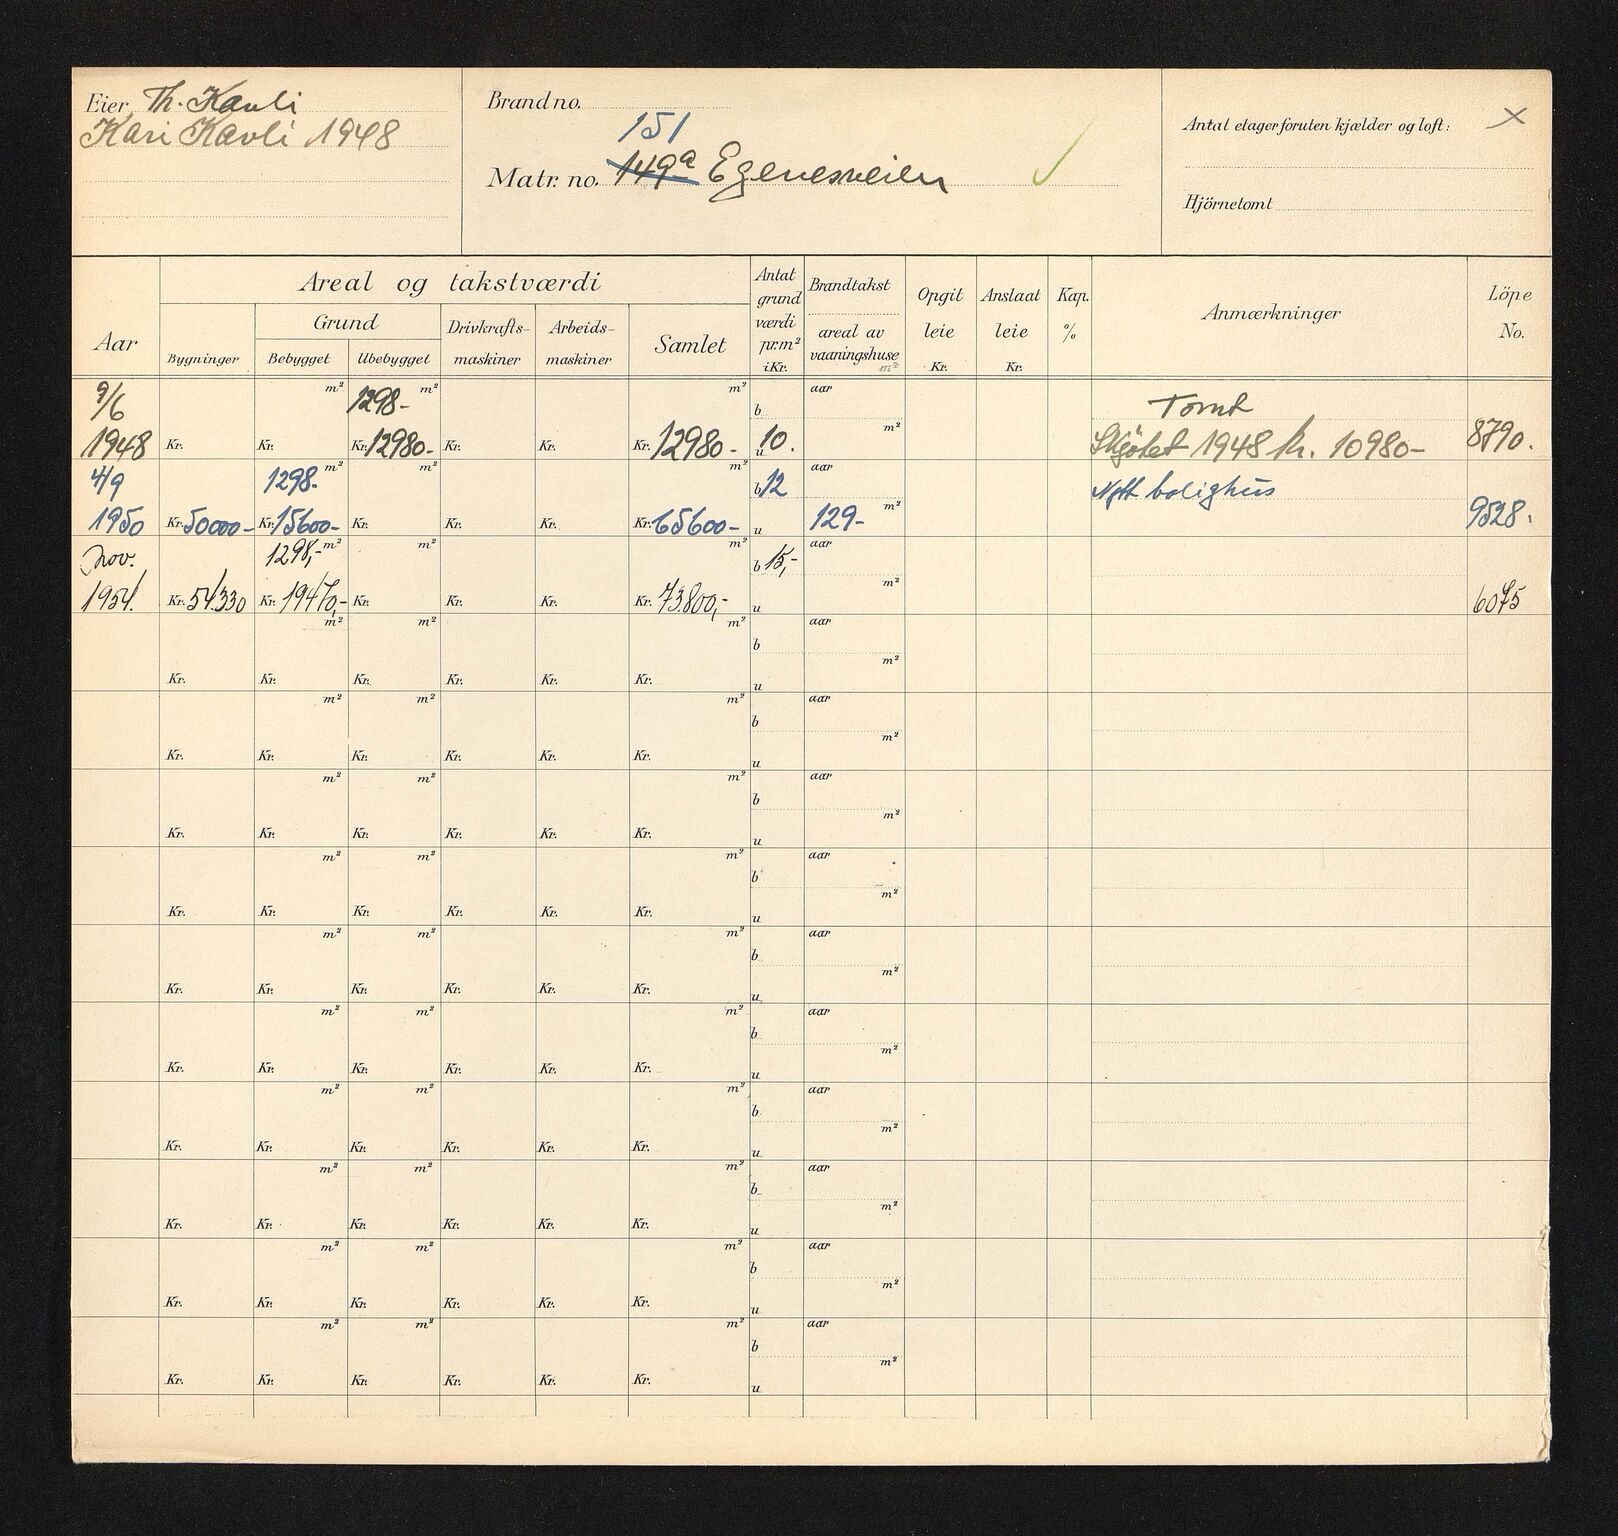 Eier Th. Kavli
Kari Kavli 1948
Brand no.
151
Matr. no. 149a Egenesveien
Antal etager foruten kjælder og loft: X
Hjörnetomt
Areal og takstværdi
Aar
Bygninger
Grund
Bebygget
Ubebygget
Drivkrafts-
maskiner
Arbeids-
maskiner
Samlet
Antat
grund
værdi
pr. m²
i Kr.
Brandtakst
areal av
vaaningshuse
m²
Opgit
leie
Kr.
Anslaat
leie
Kr.
Kap.
%
Anmærkninger
Löpe
No.
9/6 m² 1298- m² m² b aar Tomt
1948 Kr. Kr. Kr. 12980- Kr. Kr. Kr. 12980- u 10. m² Skjøtet 1948 kr. 10980- 8790.
4/9 1298. m² m² m² b 12 aar Nytt bolighus
1950 Kr. 50000- Kr. 15600- Kr. Kr. Kr. Kr. 65600- u 129- m² 9528.
Nov. 1298,- m² m² m² b 15,- aar
1954. Kr. 54.330 Kr. 19470,- Kr. Kr. Kr. Kr. 73.800,- u m² 6075
m² m² m² b aar
Kr. Kr. Kr. Kr. Kr. Kr. u m²
m² m² m² b aar
Kr. Kr. Kr. Kr. Kr. Kr. u m²
m² m² m² b aar
Kr. Kr. Kr. Kr. Kr. Kr. u m²
m² m² m² b aar
Kr. Kr. Kr. Kr. Kr. Kr. u m²
m² m² m² b aar
Kr. Kr. Kr. Kr. Kr. Kr. u m²
m² m² m² b aar
Kr. Kr. Kr. Kr. Kr. Kr. u m²
m² m² m² b aar
Kr. Kr. Kr. Kr. Kr. Kr. u m²
m² m² m² b aar
Kr. Kr. Kr. Kr. Kr. Kr. u m²
m² m² m² b aar
Kr. Kr. Kr. Kr. Kr. Kr. u m²
m² m² m² b aar
Kr. Kr. Kr. Kr. Kr. Kr. u m²